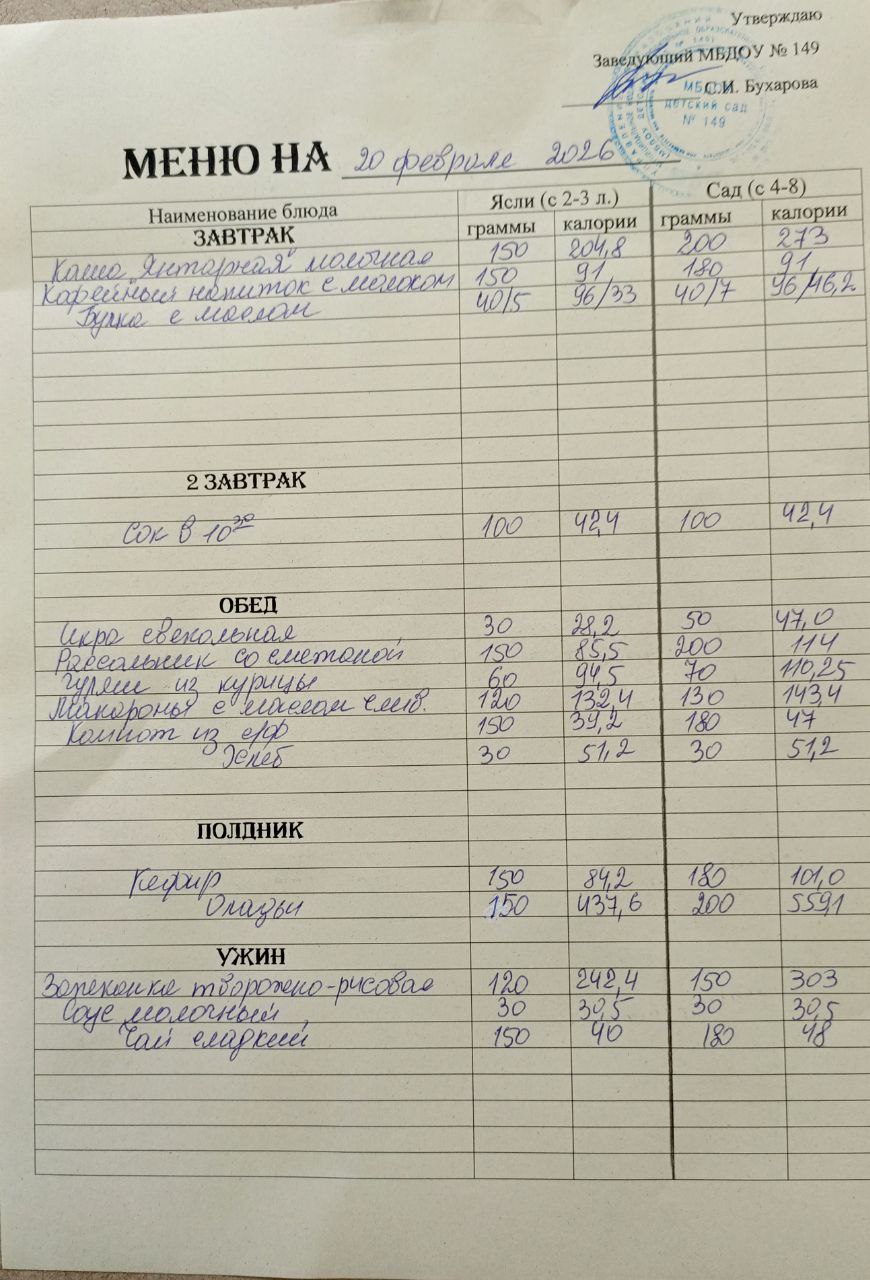 Утверждаю
Заведующий МБДОУ № 149
С.И. Бухарова
МБДОУ
детский сад
№ 149
МЕНЮ НА 20 февраля 2026
Наименование блюда Ясли (с 2-3 л.) Сад (с 4-8)
граммы калории граммы калории
ЗАВТРАК
Каша "Янтарная" молочная 150 204,8 200 273
Кофейный напиток с молоком 150 91 180 91
Булка с маслом 40/5 96/33 40/7 96/46,2
2 ЗАВТРАК
Сок в 10 30 100 42,4 100 42,4
ОБЕД
Икра свекольная 30 28,2 50 47,0
Рассольник со сметаной 150 85,5 200 114
Гуляш из курицы 60 94,5 70 110,25
Макароны с маслом слив. 120 132,4 130 143,4
Компот из с/ф 150 39,2 180 47
Хлеб 30 51,2 30 51,2
ПОЛДНИК
Кефир 150 84,2 180 101,0
Оладьи 150 437,6 200 559,1
УЖИН
Запеканка творожно-рисовая 120 242,4 150 303
Соус молочный 30 30,5 30 30,5
Чай сладкий 150 40 180 48